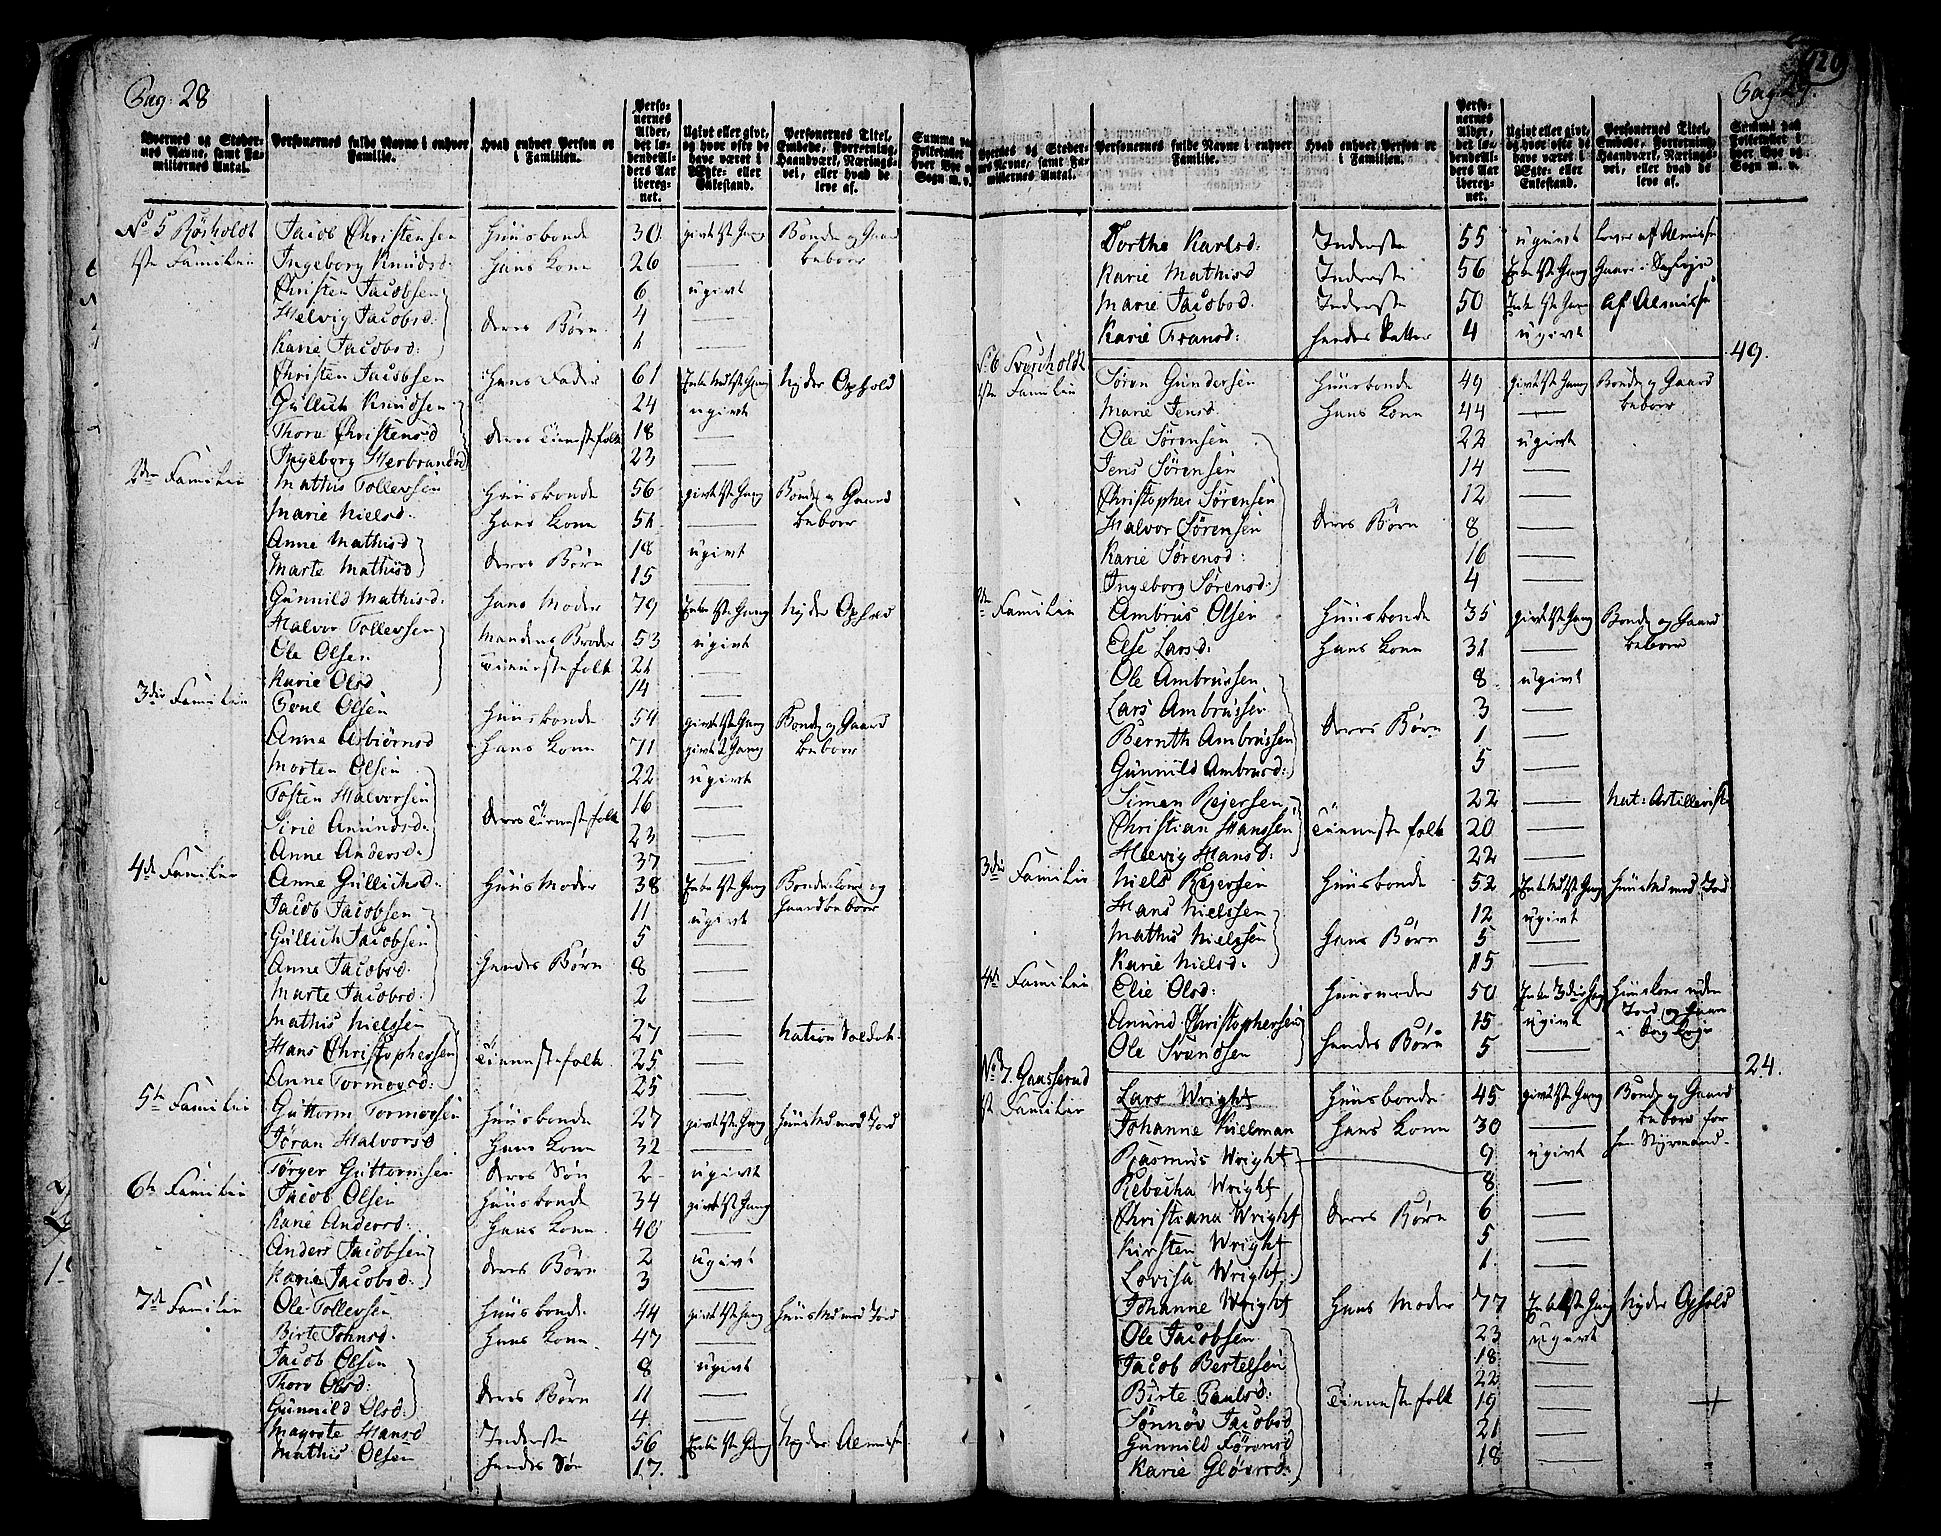 Pag: 28
Gaardenes og Stedernes Navne, samt Familiernes Antal. | Personernes fulde Navne i enhver Familie. | Hvad enhver Person er i Familien. | Personernes Alder, det løbende Alders Aar iberegnet. | Ugivt eller givt, og hvor ofte de have været i Ægte- eller Enkestand. | Personernes Titel, Embede, Forretning, Haandværk, Næringsvei, eller hvad de leve af.
No 5 Røsholdt | Jacob Christensen | Huusbonde | 30 | givt 1ste Gang | Bonde og Gaard beboer
1ste Familie | Ingeborg Knudsd: | Hans Kone | 26 | —
Christen Jacobsen | 6 | ugivt
Helvig Jacobsd: | deres Børn | 4 | —
Karie Jacobsd: | 1 | —
Christen Jacobsen | Hans Fader | 61 | Enkemd 1ste Gang | Nyder Ophold
Gullich Knudsen | 24 | ugivt
Thore Christensd | deres Tienestefolk | 18 | —
Ingeborg Herbrandsd | 23 | —
2den Familie | Mathis Tollevsen | Huusbonde | 56 | givt 1ste Gang | Bonde og Gaard beboer
Marie Nielsd. | Hans Kone | 51 | —
Anne Mathisd | deres Børn | 18 | ugivt
Marte Mathisd | 15 | —
Gunnild Mathisd. | Hans Moder | 79 | Enke 1ste Gang | Nyder Ophold
Halvor Tollevsen | Mandens Broder | 53 | ugivt
Ole Olsen | Tienestefolk | 21 | —
Karie Olsd | 14 | —
3die Familie | Poul Olsen | Huusbonde | 54 | givt 1ste Gang | Bonde og Gaard beboer
Anne Asbiørnsd | Hans Kone | 71 | givt 2 Gang
Morten Olsen | 22 | ugivt
Tosten Halvorsen | deres Tienestefolk | 16 | —
Sirie Amundsd. | 23 | —
Anne Andersd. | 37 | —
4de Familie | Anne Gullichsd. | Huusmoder | 38 | Enke 1ste Gang | Bonde Kone og Gaardbeboer
Jacob Jacobsen | 11 | ugivt
Gullich Jacobsen | 5 | —
Anne Jacobsd. | Hendes Børn | 8 | —
Marte Jacobsd. | 2 | —
Mathis Nielsen | 27 | — | Nation Soldat.
Hans Christophersen | Tienestefolk | 25 | —
Anne Tormodsd: | 25 | —
5te Familie | Guttorm Tormodsen | Huusbonde | 27 | givt 1ste Gang | Huusmd med Jord
Jøran Halvorsd | Hans Kone | 32 | —
Tørger Guttormsen | deres Søn | 2 | ugivt
6te Familie | Jacob Olsen | Huusbonde | 34 | givt 1ste Gang
Karie Andersd: | Hans Kone | 40 | —
Anders Jacobsen | deres Børn | 2 | ugivt
Karie Jacobsd. | 3 | —
7de Familie | Ole Tollevsen | Huusbonde | 44 | givt 1ste Gang | Huusmd med Jord
Birte Johnsd. | Hans Kone | 47 | —
Jacob Olsen | 8 | ugivt
Thore Olsd: | deres Børn | 11 | —
Gunnild Olsd: | 4 | —
Magrete Hansd | Inderste | 56 | Enke 1ste Gang | Nyder Almisse
Mathis Olsen | Hendes Søn | 17
Pag 29.
Personernes fulde Navne i enhver Familie. | Hvad enhver Person er i Familien. | Personernes Alder, det løbende Alders Aar iberegnet. | Ugivt eller givt, og hvor ofte de have været i Ægte- eller Enkestand. | Personernes Titel, Embede, Forretning, Haandværk, Næringsvei, eller hvad de leve af.
Dorthe Karlsd: | Inderste | 55 | ugivt | Lever af Almisse
Karie Mathisd | Inderste | 56 | Enke 1ste Gang
Marie Jacobsd. | Inderste | 50 | Enke 1ste Gang | Af Almisse
Karie Fransd: | Hendes Datter | 4 | ugivt
49.
No 6 Svartholdt
1ste Familie | Søren Gundersen | Huusbonde | 49 | givt 1ste Gang | Bonde og Gaard beboer
Marie Jensd. | Hans Kone | 44 | —
Ole Sørensen | 22 | ugivt
Jens Sørensen | 14 | —
Christopher Sørensen | 12 | —
Halvor Sørensen | deres Børn | 8 | —
Karie Sørensd: | 16 | —
Ingeborg Sørensd: | 4 | —
2den Familie | Ambrus Olsen | Huusbonde | 35 | givt 1ste Gang | Bonde og Gaard beboer
Else Larsd: | Hans Kone | 31 | —
Ole Ambrussen | 8 | ugivt
Lars Ambrussen | 3 | —
Bernth Ambrussen | deres Børn | 1 | —
Gunnild Ambrusd: | 5 | —
Simen Rejersen | 22 | — | Nat: Artillerist
Christian Hanssen | Tienestefolk | 20 | —
Helvig Hansd: | 22 | —
3die Familie | Niels Rejersen | Huusbonde | 52 | Enkemd 1ste Gang | Huusmd med Jord
Hans Nielssen | 12 | ugivt
Mathis Nielssen | Hans Børn | 5 | —
Karie Nielsd. | 15 | —
4de Familie | Elie Olsd: | Huusmoder | 50 | Enke 3die Gang | Huuskone uden Jord og Gaar i
Amund Christophersen | Hendes Børn | 15 | ugivt
Ole Svendsen | 5 | —
24.
No 7. Gausserud
1ste Familie | Lars Wright | Huusbonde | 45 | givt 1ste Gang | Bonde og Gaard beboer for hen Styrmand
Johanne Kielman | Hans Kone | 30 | —
Rasmus Wright | 9 | ugivt
Rebecha Wright | 8 | —
Christiana Wright | deres Børn | 6 | —
Kirsten Wright | 5 | —
Lovisa Wright | 1 | —
Johanne Wright | Hans Moder | 77 | Enke 1ste Gang | Nyder Ophold
Ole Jacobsen | 23 | ugivt
Jacob Bertelsen | 18 | —
Birte Paulsd: | Tienestefolk | 22 | —
Sønnøv Jacobsd | 19 | —
Gunnild Sørensd | 21 | —
Karie Gløersd: | 18 | —